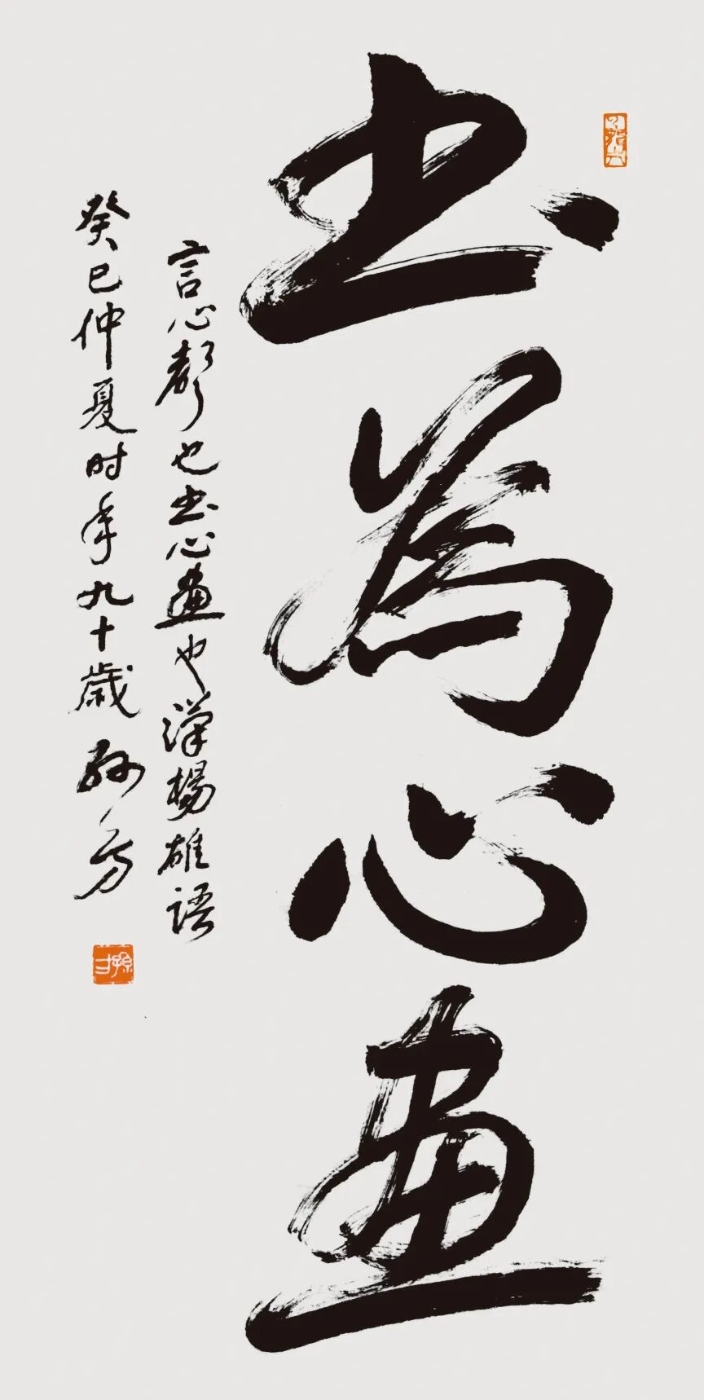 书為心畫
言心聲也书心畫也漢楊雄語
癸巳仲夏时年九十歲孙方